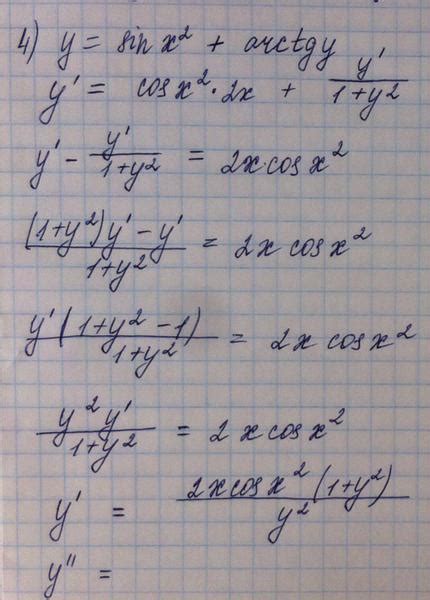 4) y = sin x² + arctgy
y' = cos x² · 2x + y'/(1+y²)
y' - y'/(1+y²) = 2x·cos x²
((1+y²)y' - y')/(1+y²) = 2x cos x²
y'(1+y² -1)/(1+y²) = 2x cos x²
y² y'/(1+y²) = 2 x cos x²
y' = 2x cos x² (1+y²)/y²
y'' =